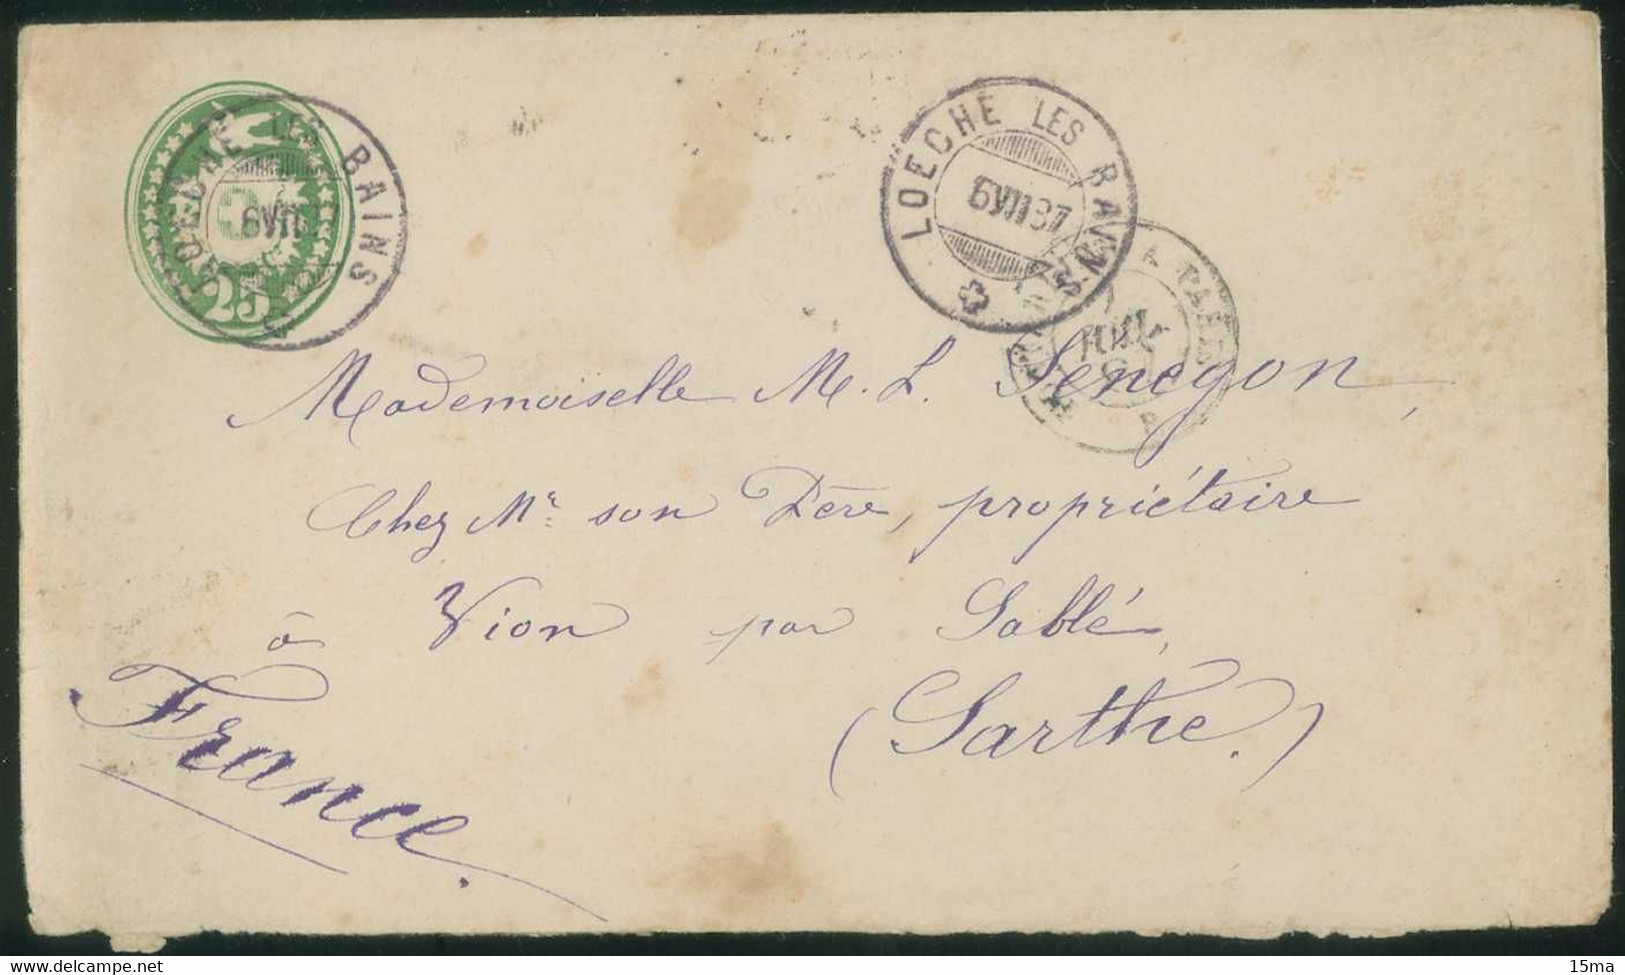 LOECHE LES BAINS
6 VII
25
LOECHE LES BAINS
6 VII 87
A PARIS
JUIL
Mademoiselle M. L. Senegon,
Chez Mr. son Père, propriétaire
à Vion par Sablé,
(Sarthe.)
France.
15ma